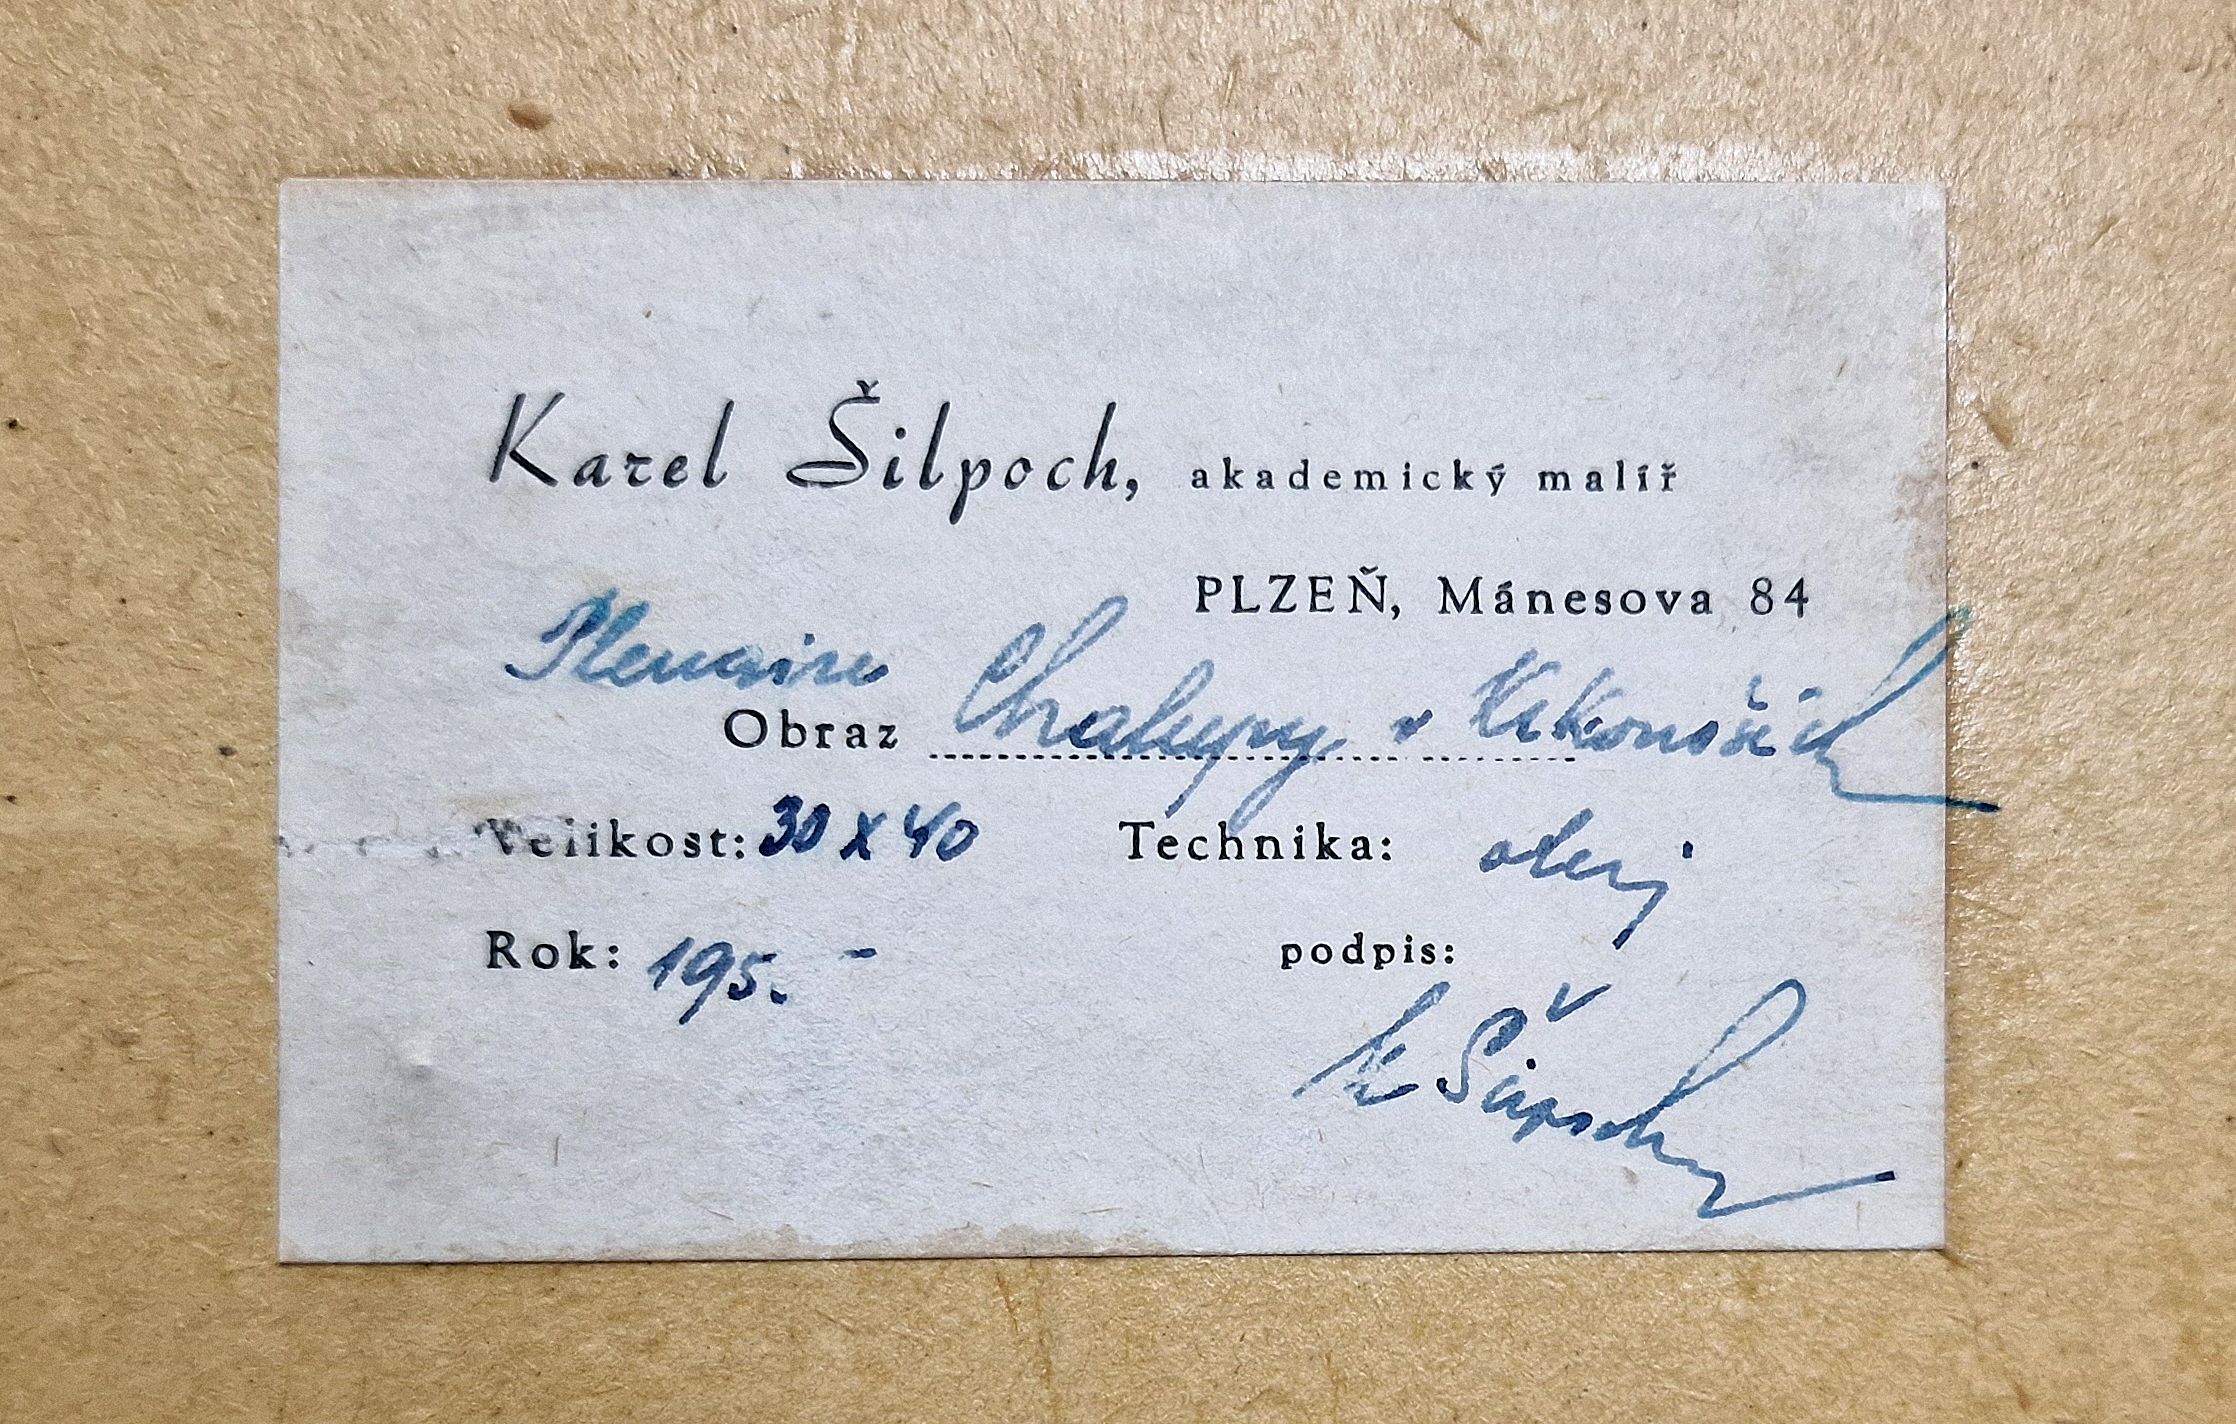 Karel Šilpoch, akademický malíř
PLZEŇ, Mánesova 84
Plenaire
Obraz Chalupy v Krkonoších
Velikost: 30 x 40 Technika: olej
Rok: 195. - podpis:
K Šilpoch